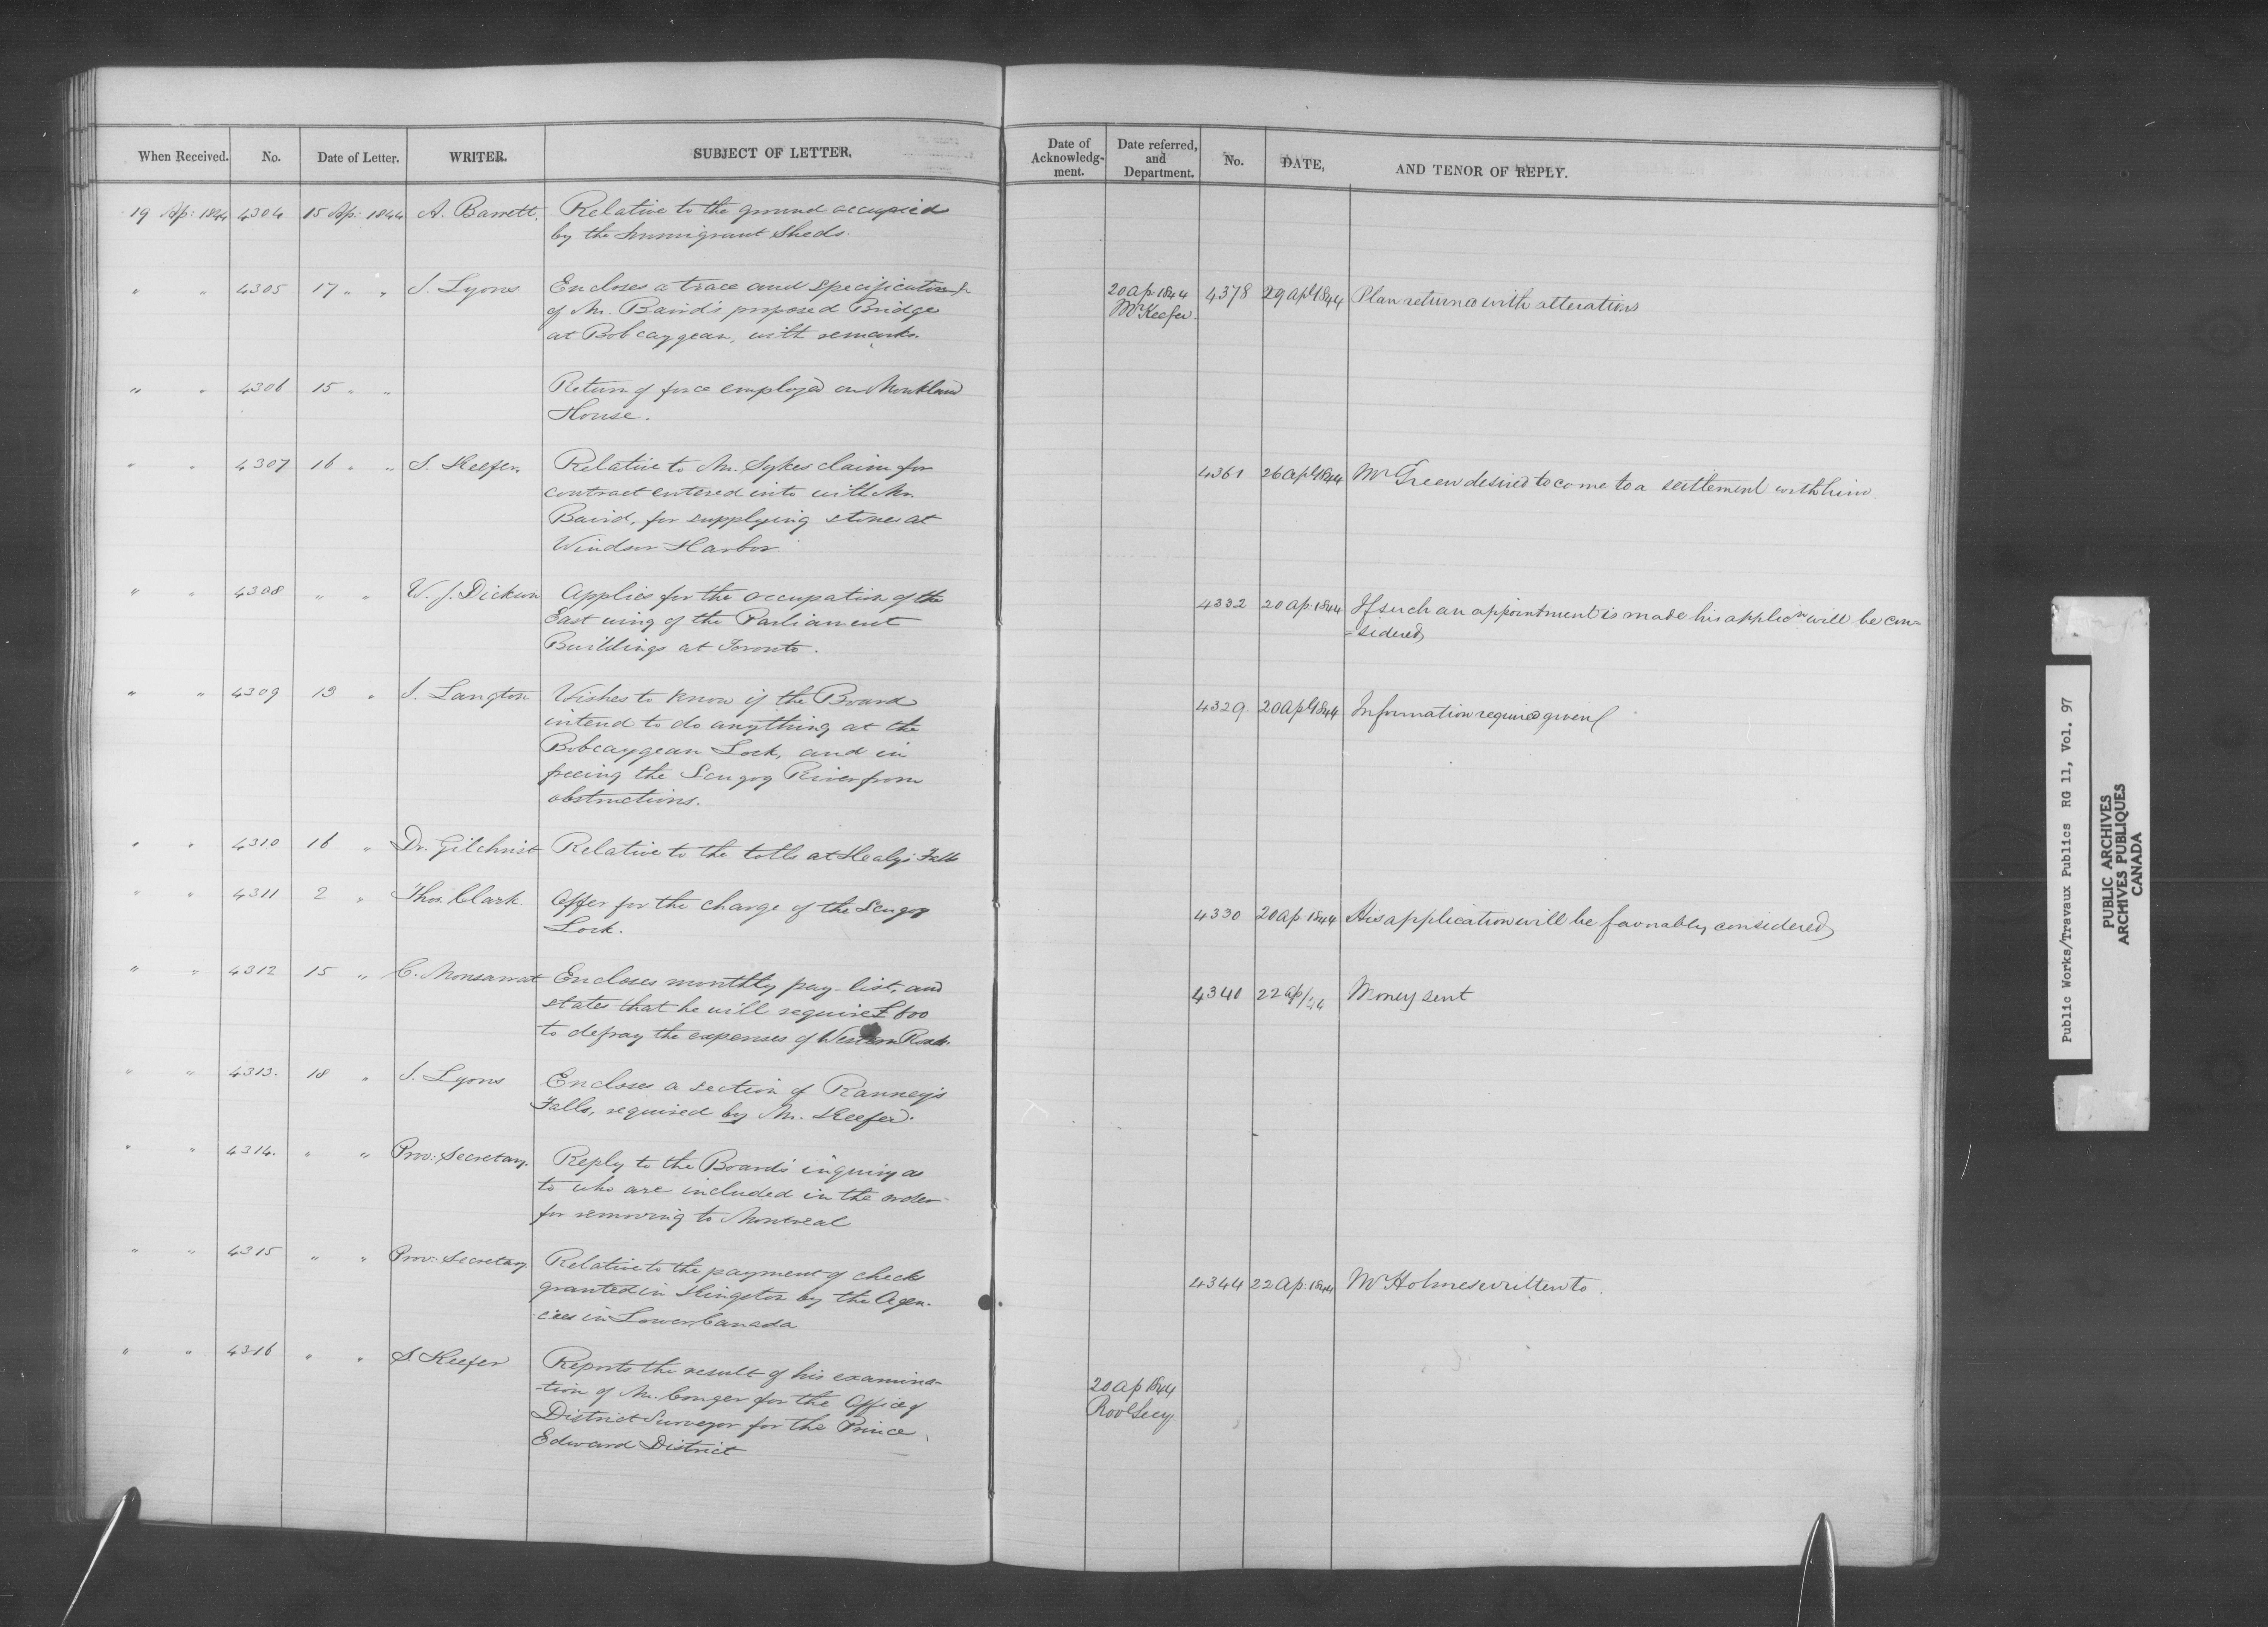 When Received. No. Date of Letter. WRITER. SUBJECT OF LETTER.
Date of Acknowledg-ment. Date referred, and Department. No. DATE, AND TENOR OF REPLY.
19 Ap: 1844 4304 15 Ap: 1844 A. Barrett. Relative to the ground occupied
by the Immigrant Sheds.
" " 4305 17 " " J. Lyons Encloses a trace and specification &
of Mr. Baird's proposed Bridge
at Bobcaygean, with remarks.
20 ap. 1844 4378 29 apl 1844 Plan returned with alterations
Mr Keefer.
" " 4306 15 " " Return of force employed on Monkland
House.
" " 4307 16 " " S. Keefer. Relative to Mr. Sykes claim for
contract entered into with Mr.
Baird, for supplying stones at
Windsor Harbor.
4361 26 apl 1844 Mr Green desired to come to a settlement with him.
" " 4308 " " W. J. Dickson Applies for the occupation of the
East wing of the Parliament
Buildings at Toronto.
4332 20 ap. 1844 If such an appointment is made his applicn will be con=
=sidered
" " 4309 13 " J. Langton Wishes to know if the Board
intend to do anything at the
Bobcaygean Lock, and in
freeing the Scugog River from
obstructions.
4329. 20 apl 1844 Information required given
" " 4310 16 " Dr. Gilchrist Relative to the tolls at Healy's Falls
" " 4311 2 " Thos. Clark. Offer for the charge of the Scugog
Lock.
4330 20 ap. 1844 His application will be favorably considered
" " 4312 15 " C. Monsarrat Encloses monthly pay-list, and
states that he will require £600
to defray the expenses of Western Road.
4340 22 ap/44 Money sent
" " 4313. 18 " J. Lyons Encloses a section of Ranney's
Falls, required by Mr. Keefer.
" " 4314. " " Prov: Secretary. Reply to the Board's inquiry as
to who are included in the order
for removing to Montreal
" " 4315 " " Prov: Secretary Relative to the payment of checks
granted in Kingston by the Agen-
-cies in Lower Canada
4344 22 ap. 1844 Mr Holmes written to.
" " 4316 " " S. Keefer Reports the result of his examina-
-tion of Mr. Conger for the Office of
District Surveyor for the Prince
Edward District
20 ap 1844
Prov Secy.
Public Works/Travaux Publics RG 11, Vol. 97
PUBLIC ARCHIVES
ARCHIVES PUBLIQUES
CANADA